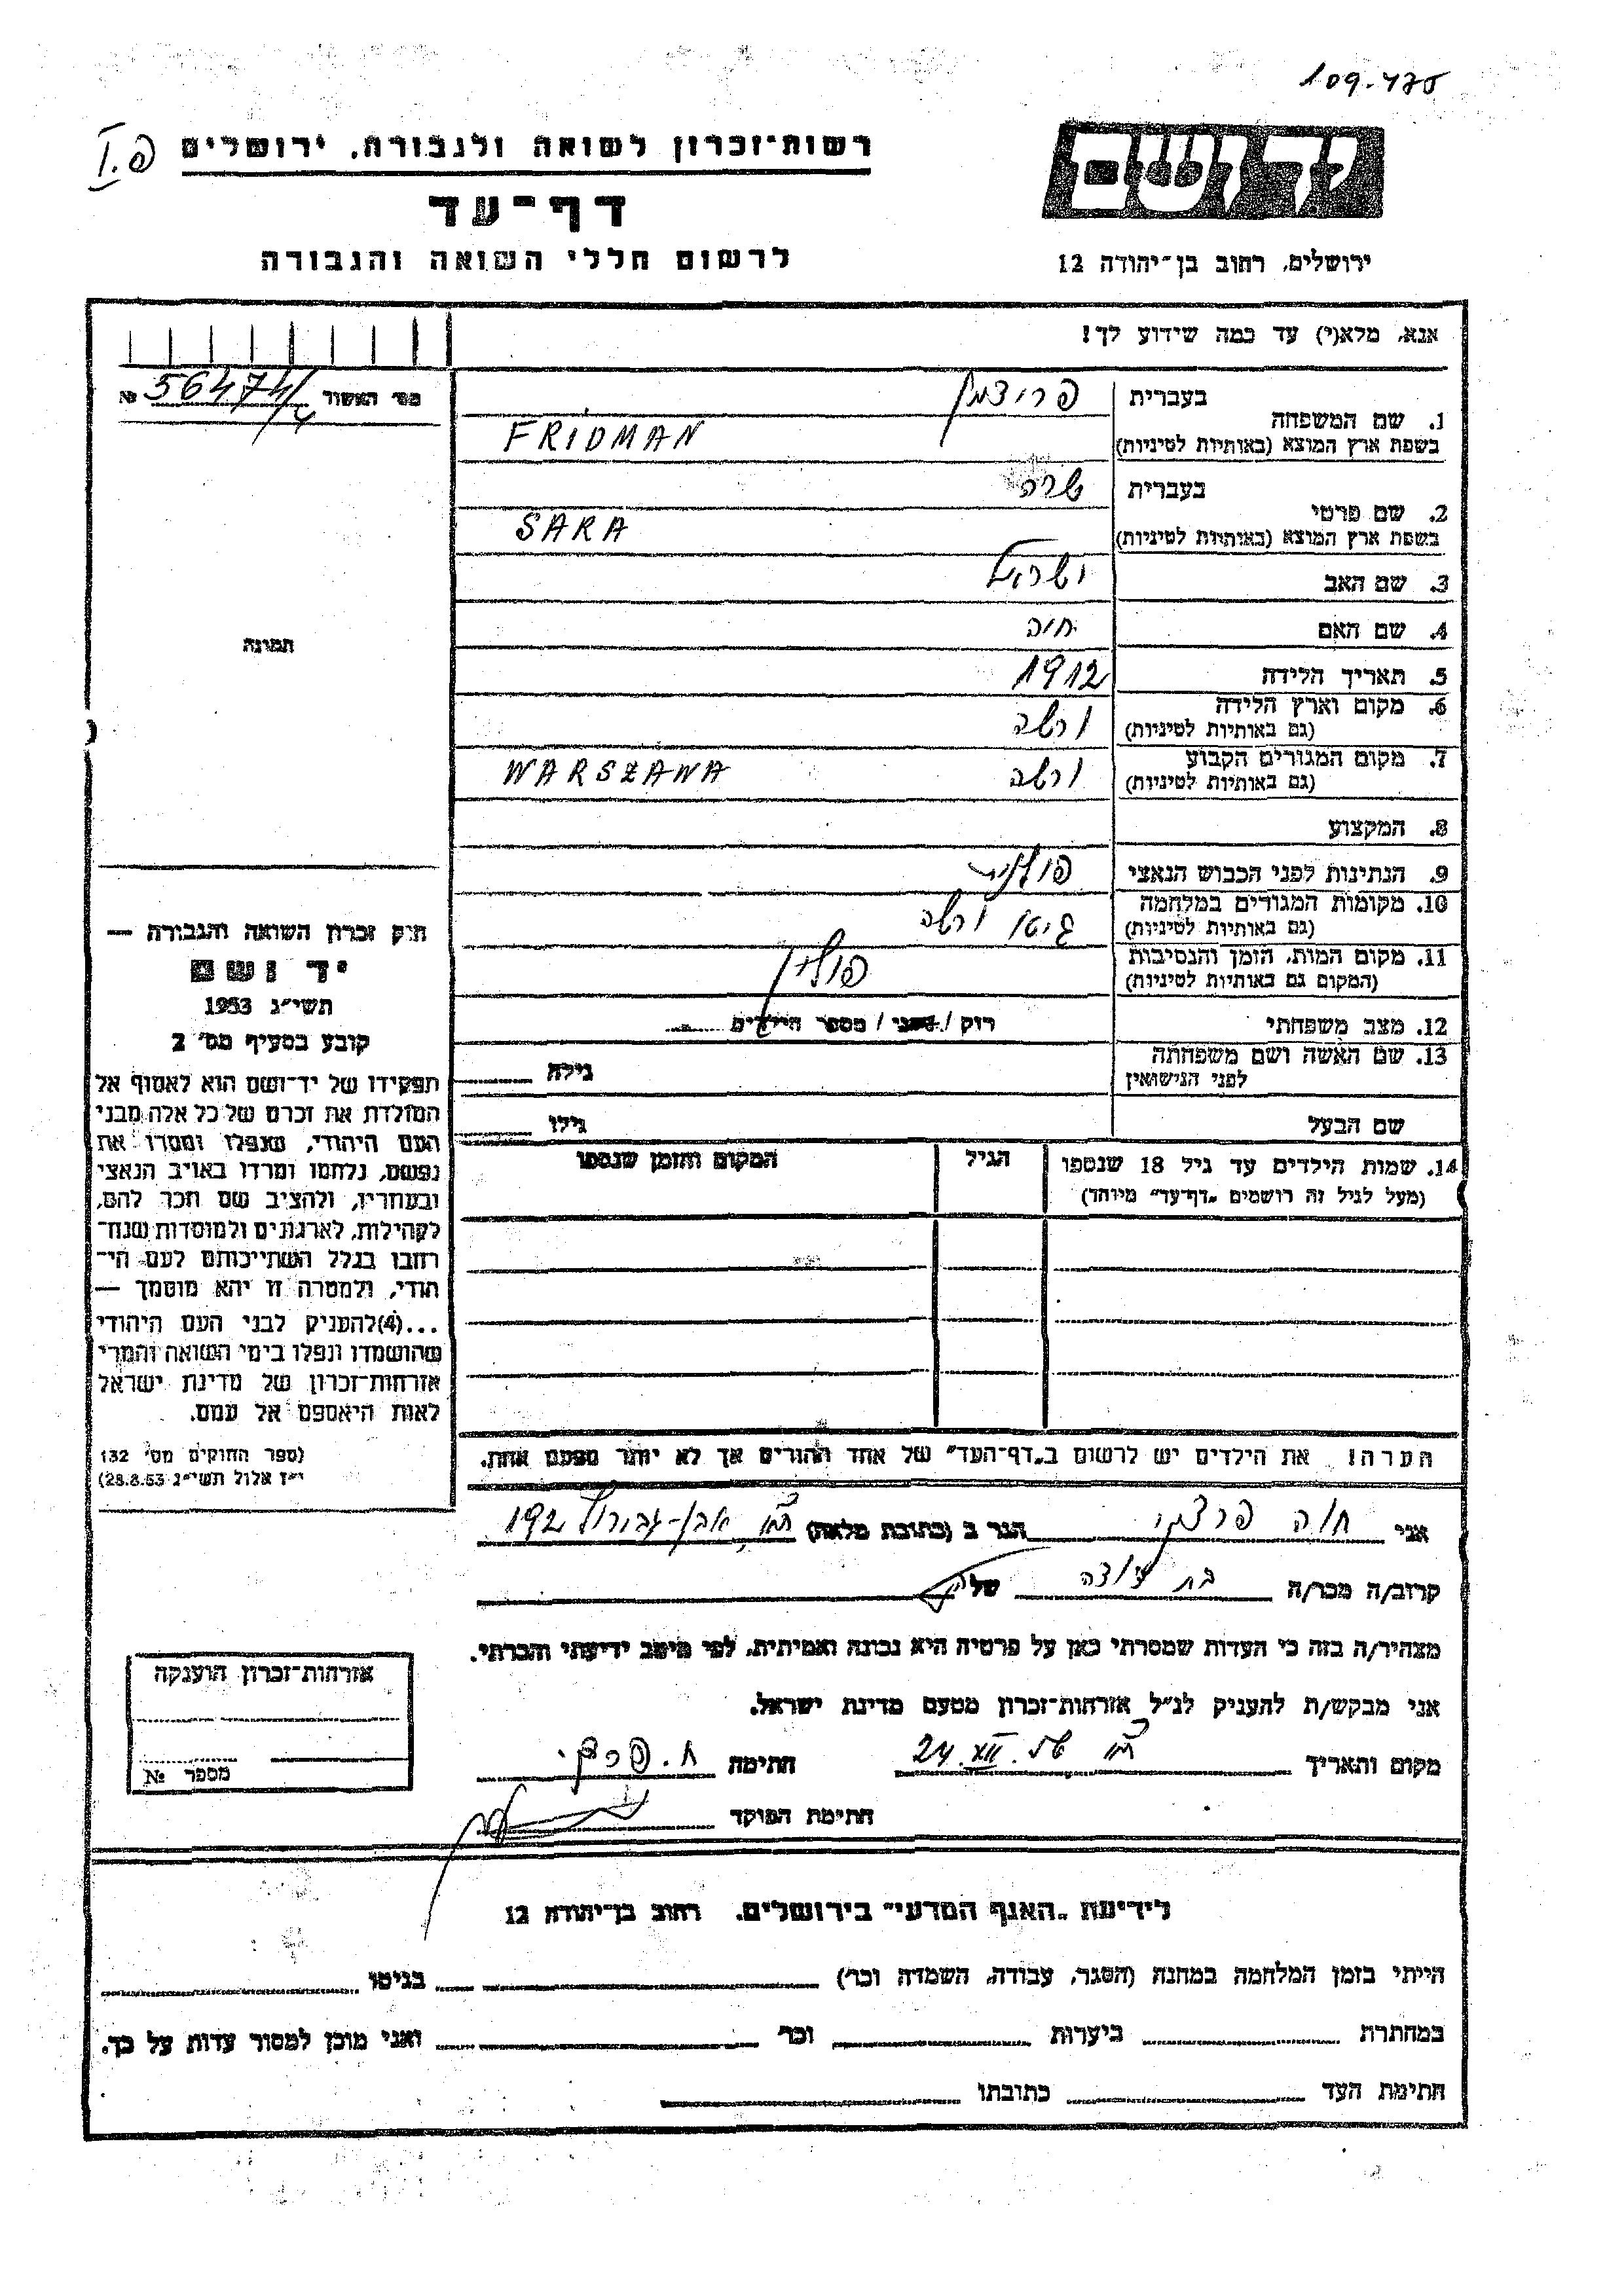 109-475
רשות־זכרון לשואה ולגבורה, ירושלים
דף־עד
לרשום חללי השואה והגבורה
יד ושם
ירושלים, רחוב בן־יהודה 12
אנא, מלא(י) עד כמה שידוע לך!
מס׳ האשור 56474/4 №
בעברית פרידמן
1. שם המשפחה
בשפת ארץ המוצא (באותיות לטיניות) FRIDMAN
בעברית שרה
2. שם פרטי
בשפת ארץ המוצא (באותיות לטיניות) SARA
3. שם האב ישראל
4. שם האם חיה
5. תאריך הלידה 1912
6. מקום וארץ הלידה ורשה
(גם באותיות לטיניות)
7. מקום המגורים הקבוע ורשה WARSZAWA
(גם באותיות לטיניות)
8. המקצוע
9. הנתינות לפני הכבוש הנאצי פולנית
10. מקומות המגורים במלחמה גיטו ורשה
(גם באותיות לטיניות)
11. מקום המות, הזמן והנסיבות פולין
(המקום גם באותיות לטיניות)
12. מצב משפחתי רוק / נשוי / מספר הילדים
13. שם האשה ושם משפחתה גילה
לפני הנישואין
שם הבעל גילו
14. שמות הילדים עד גיל 18 שנספו הגיל המקום והזמן שנספו
(מעל לגיל זה רושמים „דף־עד״ מיוחד)
הערה! את הילדים יש לרשום ב„דף־העד״ של אחד ההורים אך לא יותר מפעם אחת.
תמונה
חוק זכרון השואה והגבורה —
יד ושם
תשי״ג 1953
קובע בסעיף מס׳ 2
תפקידו של יד־ושם הוא לאסוף אל
המולדת את זכרם של כל אלה מבני
העם היהודי, שנפלו ומסרו את
נפשם, נלחמו ומרדו באויב הנאצי
ובעוזריו, ולהציב שם וזכר להם,
לקהילות, לארגונים ולמוסדות שנח־
רבו בגלל השתייכותם לעם הי־
הודי, ולמטרה זו יהא מוסמך —
...(4)להעניק לבני העם היהודי
שהושמדו ונפלו בימי השואה והמרי
אזרחות־זכרון של מדינת ישראל
לאות היאספם אל עמם.
(ספר החוקים מס׳ 132
י״ז אלול תשי״ג 28.8.53)
אני חוה הגר ב (כתובת מלאה) אבן-גבירול 192
קרוב/ה מכר/ה בת דודה של
מצהיר/ה בזה כי העדות שמסרתי כאן על פרטיה היא נכונה ואמיתית, לפי מיטב ידיעתי והכרתי.
אני מבקש/ת להעניק לנ״ל אזרחות־זכרון מטעם מדינת ישראל.
מקום ותאריך 24.XII חתימה
חתימת הפוקד
אזרחות־זכרון הוענקה
מספר №
לידיעת „האגף המדעי״ בירושלים, רחוב בן־יהודה 12
הייתי בזמן המלחמה במחנה (הסגר, עבודה, השמדה וכו׳) בגיטו
במחתרת ביערות וכו׳ ואני מוכן למסור עדות על כך.
חתימת העד כתובתו